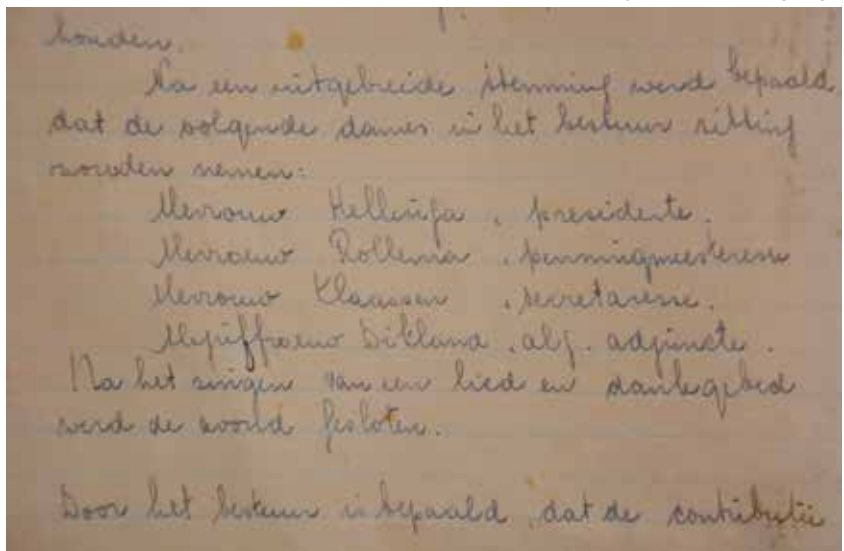 houden.
Na een uitgebreide stemming werd bepaald
dat de volgende dames in het bestuur zitting
zouden nemen:
Mevrouw Hellinga, presidente.
Mevrouw Rollema, penningmeesteresse
Mevrouw Klaassen, secretaresse.
Mejuffrouw Dikland, alg. adjuncte.
Na het zingen van een lied en dankgebed
werd de avond gesloten.
Door het bestuur is bepaald, dat de contributie